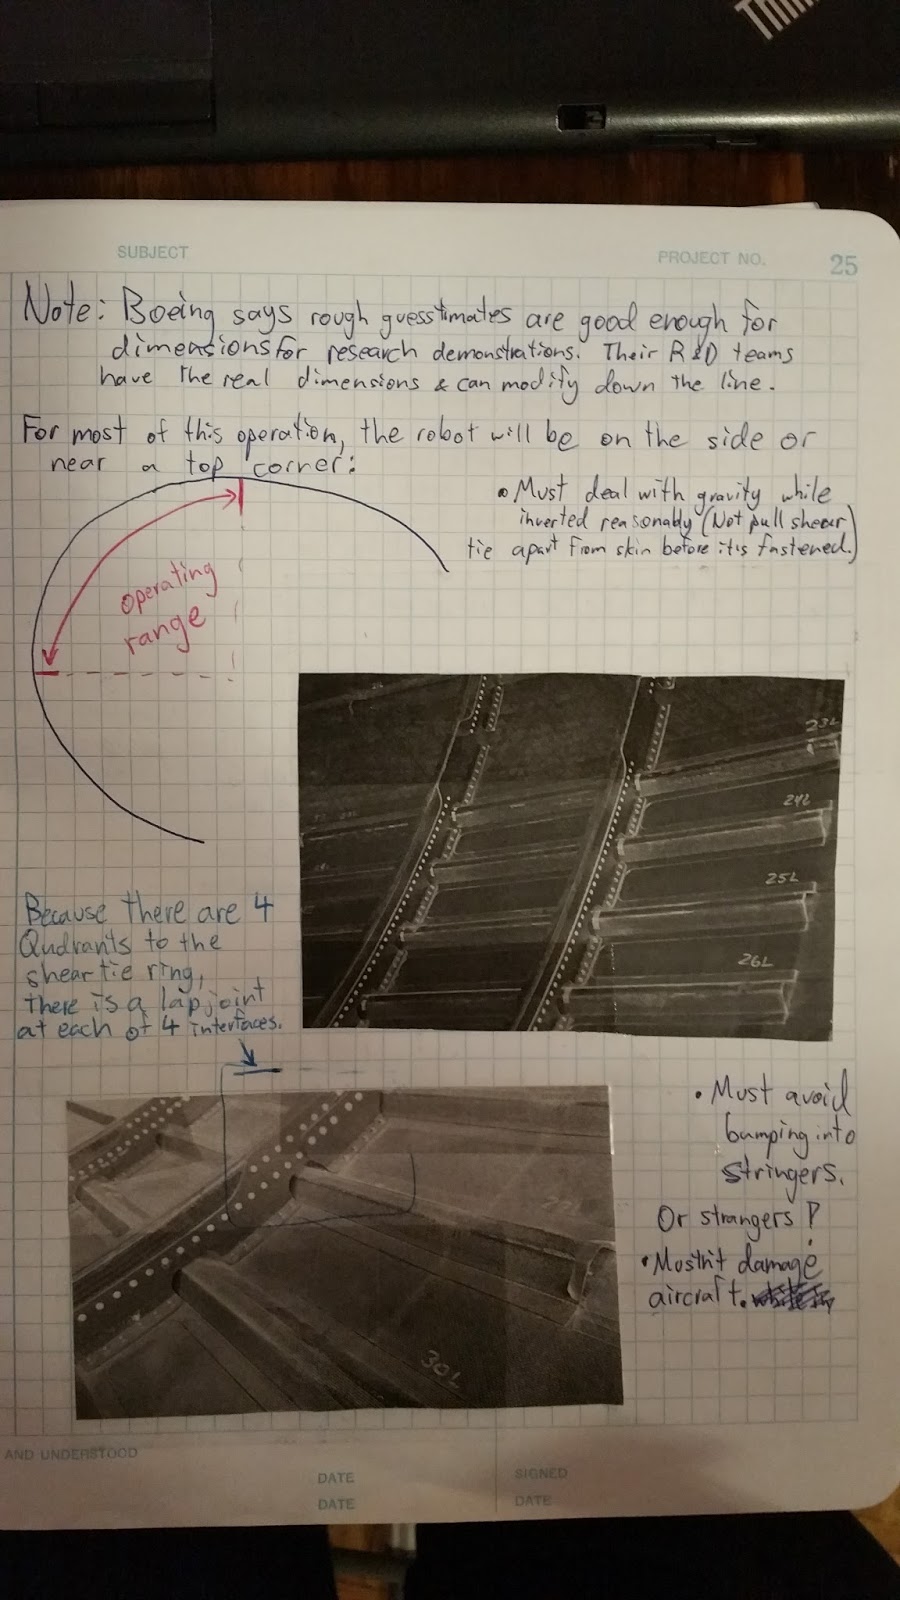 Thin
SUBJECT
PROJECT NO.
25
Note: Boeing says rough guesstimates are good enough for
dimensions for research demonstrations. Their R&D teams
have the real dimensions & can modify down the line.
For most of this operation, the robot will be on the side or
near a top corner:
• Must deal with gravity while
inverted reasonably (Not pull shear
tie apart from skin before it's fastened.)
operating
range
23L
24L
25L
26L
Because there are 4
Qudrants to the
shear tie ring,
there is a lap joint
at each of 4 interfaces.
• Must avoid
bumping into
stringers.
Or strangers!
• Mustn't damage
aircraft.
30L
AND UNDERSTOOD
DATE
SIGNED
DATE
DATE